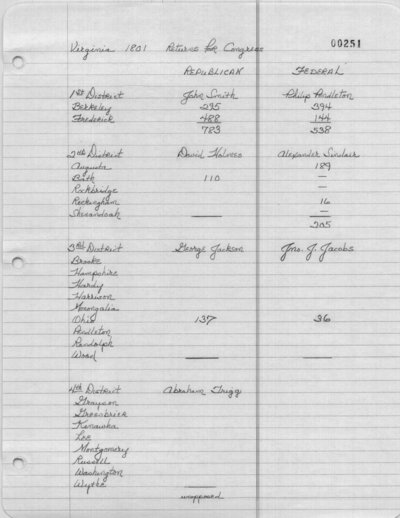 00251
Virginia 1801 Returns for Congress
REPUBLICAN FEDERAL
1st District John Smith Philip Pendleton
Berkeley 295 394
Frederick 488 144
783 538
2nd District David Holmes Alexander Sinclair
Augusta 189
Bath 110 —
Rockbridge —
Rockingham 16
Shenandoah —
205
3rd District George Jackson Jno. J. Jacobs
Brooke
Hampshire
Hardy
Harrison
Monongalia
Ohio 137 36
Pendleton
Randolph
Wood
4th District Abraham Trigg
Grayson
Greenbrier
Kanawha
Lee
Montgomery
Russell
Washington
Wythe
unopposed